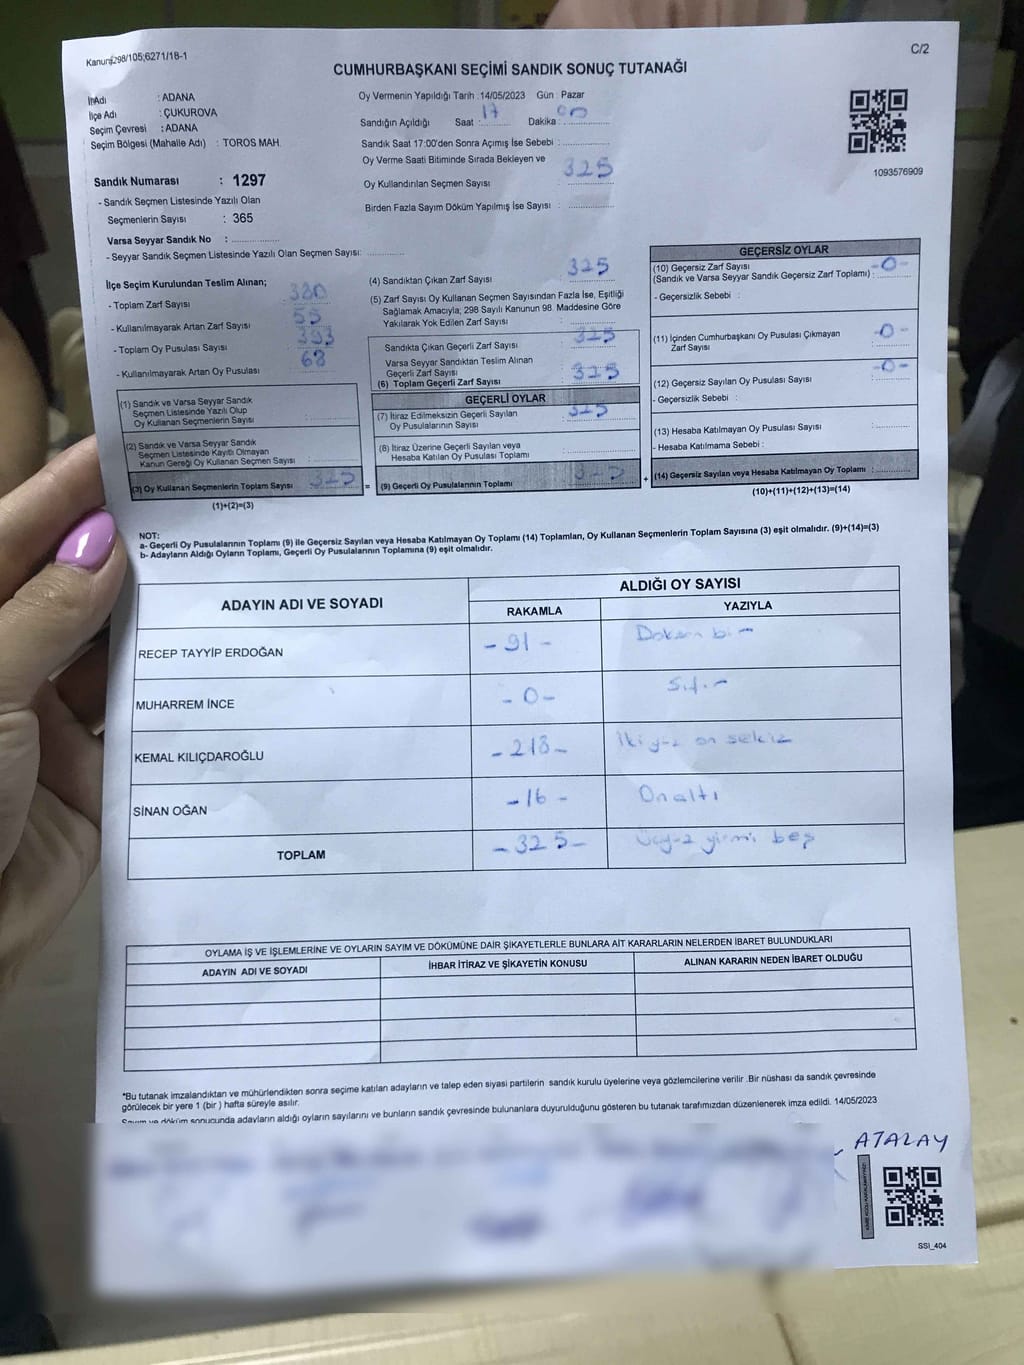 Kanun:298/105;6271/18-1
C/2
CUMHURBAŞKANI SEÇİMİ SANDIK SONUÇ TUTANAĞI
İl Adı : ADANA
İlçe Adı : ÇUKUROVA
Seçim Çevresi : ADANA
Seçim Bölgesi (Mahalle Adı) : TOROS MAH.
Sandık Numarası : 1297
- Sandık Seçmen Listesinde Yazılı Olan
Seçmenlerin Sayısı : 365
Varsa Seyyar Sandık No :
- Seyyar Sandık Seçmen Listesinde Yazılı Olan Seçmen Sayısı:
Oy Vermenin Yapıldığı Tarih :14/05/2023 Gün : Pazar
Sandığın Açıldığı Saat : 17 Dakika : 00
Sandık Saat 17:00'den Sonra Açımış İse Sebebi :
Oy Verme Saati Bitiminde Sırada Bekleyen ve
Oy Kullandırılan Seçmen Sayısı : 325
Birden Fazla Sayım Döküm Yapılmış İse Sayısı :
1093576909
İlçe Seçim Kurulundan Teslim Alınan;
- Toplam Zarf Sayısı : 380
- Kullanılmayarak Artan Zarf Sayısı : 55
- Toplam Oy Pusulası Sayısı : 393
- Kullanılmayarak Artan Oy Pusulası : 68
(1) Sandık ve Varsa Seyyar Sandık
Seçmen Listesinde Yazılı Olup
Oy Kullanan Seçmenlerin Sayısı :
(2) Sandık ve Varsa Seyyar Sandık
Seçmen Listesinde Kayıtlı Olmayan
Kanun Gereği Oy Kullanan Seçmen Sayısı :
(3) Oy Kullanan Seçmenlerin Toplam Sayısı : 325
(1)+(2)=(3)
(4) Sandıktan Çıkan Zarf Sayısı : 325
(5) Zarf Sayısı Oy Kullanan Seçmen Sayısından Fazla İse, Eşitliği
Sağlamak Amacıyla; 298 Sayılı Kanunun 98. Maddesine Göre
Yakılarak Yok Edilen Zarf Sayısı :
Sandıkta Çıkan Geçerli Zarf Sayısı : 325
Varsa Seyyar Sandıktan Teslim Alınan
Geçerli Zarf Sayısı
(6) Toplam Geçerli Zarf Sayısı : 325
GEÇERLİ OYLAR
(7) İtiraz Edilmeksizin Geçerli Sayılan
Oy Pusulalarının Sayısı : 325
(8) İtiraz Üzerine Geçerli Sayılan veya
Hesaba Katılan Oy Pusulası Toplamı :
= (9) Geçerli Oy Pusulalarının Toplamı : 325
GEÇERSİZ OYLAR
(10) Geçersiz Zarf Sayısı
(Sandık ve Varsa Seyyar Sandık Geçersiz Zarf Toplamı) : -0-
- Geçersizlik Sebebi :
(11) İçinden Cumhurbaşkanı Oy Pusulası Çıkmayan
Zarf Sayısı : -0-
(12) Geçersiz Sayılan Oy Pusulası Sayısı : -0-
- Geçersizlik Sebebi :
(13) Hesaba Katılmayan Oy Pusulası Sayısı :
- Hesaba Katılmama Sebebi :
+ (14) Geçersiz Sayılan veya Hesaba Katılmayan Oy Toplamı :
(10)+(11)+(12)+(13)=(14)
NOT:
a- Geçerli Oy Pusulalarının Toplamı (9) ile Geçersiz Sayılan veya Hesaba Katılmayan Oy Toplamı (14) Toplamları, Oy Kullanan Seçmenlerin Toplam Sayısına (3) eşit olmalıdır. (9)+(14)=(3)
b- Adayların Aldığı Oyların Toplamı, Geçerli Oy Pusulalarının Toplamına (9) eşit olmalıdır.
ADAYIN ADI VE SOYADI
ALDIĞI OY SAYISI
RAKAMLA YAZIYLA
RECEP TAYYİP ERDOĞAN -91- Doksan bir
MUHARREM İNCE -0- Sıfır
KEMAL KILIÇDAROĞLU -218- İkiyüz on sekiz
SİNAN OĞAN -16- Onaltı
TOPLAM -325- Üçyüz yirmi beş
OYLAMA İŞ VE İŞLEMLERİNE VE OYLARIN SAYIM VE DÖKÜMÜNE DAİR ŞİKAYETLERLE BUNLARA AİT KARARLARIN NELERDEN İBARET BULUNDUKLARI
ADAYIN ADI VE SOYADI İHBAR İTİRAZ VE ŞİKAYETİN KONUSU ALINAN KARARIN NEDEN İBARET OLDUĞU
*Bu tutanak imzalandıktan ve mühürlendikten sonra seçime katılan adayların ve talep eden siyasi partilerin sandık kurulu üyelerine veya gözlemcilerine verilir .Bir nüshası da sandık çevresinde
görülecek bir yere 1 (bir ) hafta süreyle asılır.
Sayım ve döküm sonucunda adayların aldığı oyların sayılarını ve bunların sandık çevresinde bulunanlara duyurulduğunu gösteren bu tutanak tarafımızdan düzenlenerek imza edildi. 14/05/2023
ATALAY
SSI_404